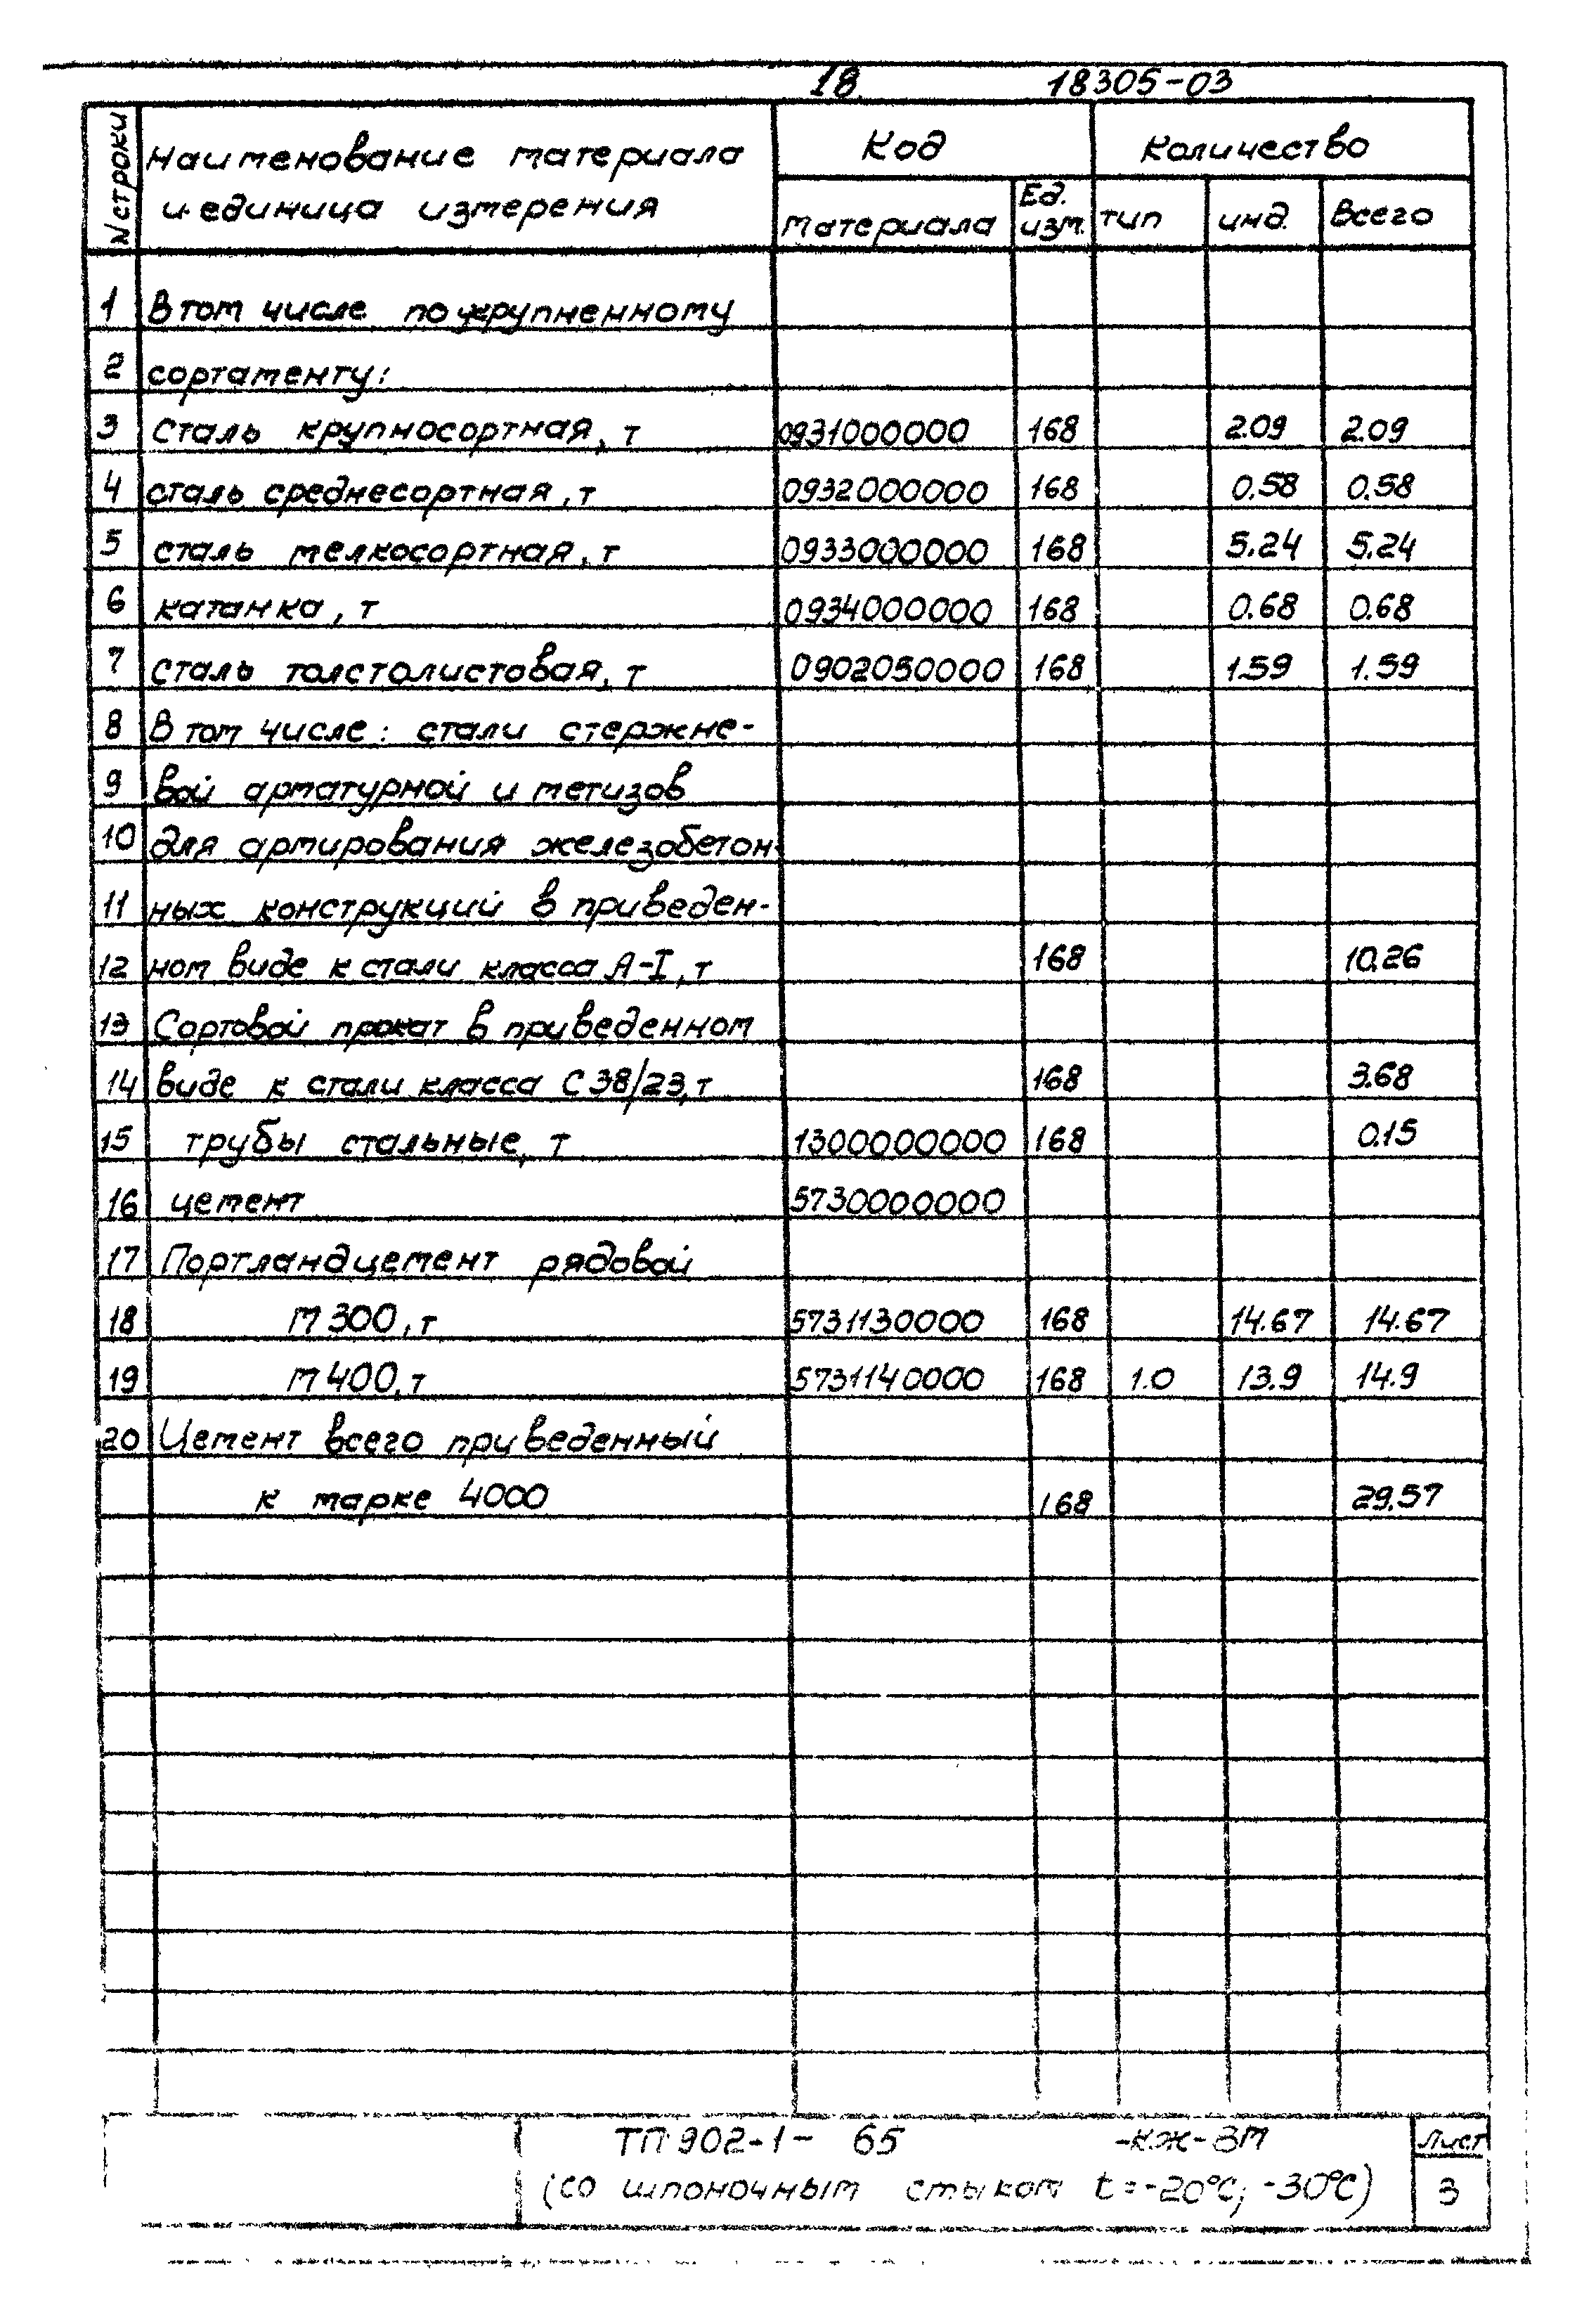 18 18305-03
N строки Наименование материала и единица измерения Код Количество
материала Ед. изм. тип инд. Всего
1 В том числе по укрупненному
2 сортаменту:
3 Сталь крупносортная, т 0931000000 168 2.09 2.09
4 сталь среднесортная, т 0932000000 168 0.58 0.58
5 сталь мелкосортная, т 0933000000 168 5.24 5.24
6 катанка, т 0934000000 168 0.68 0.68
7 Сталь толстолистовая, т 0902050000 168 1.59 1.59
8 В том числе: стали стержне-
9 вой арматурной и метизов
10 для армирования железобетон-
11 ных конструкций в приведен-
12 ном виде к стали класса А-I, т 168 10.26
13 Сортовой прокат в приведенном
14 виде к стали класса С38/23, т 168 3.68
15 трубы стальные, т 1300000000 168 0.15
16 цемент 5730000000
17 Портландцемент рядовой
18 М300, т 5731130000 168 14.67 14.67
19 М400, т 5731140000 168 1.0 13.9 14.9
20 Цемент всего приведенный
к марке 4000 168 29.57
ТП 902-1- 65 -КЖ-ВМ Лист
(со шпоночным стыком t=-20°С; -30°С) 3